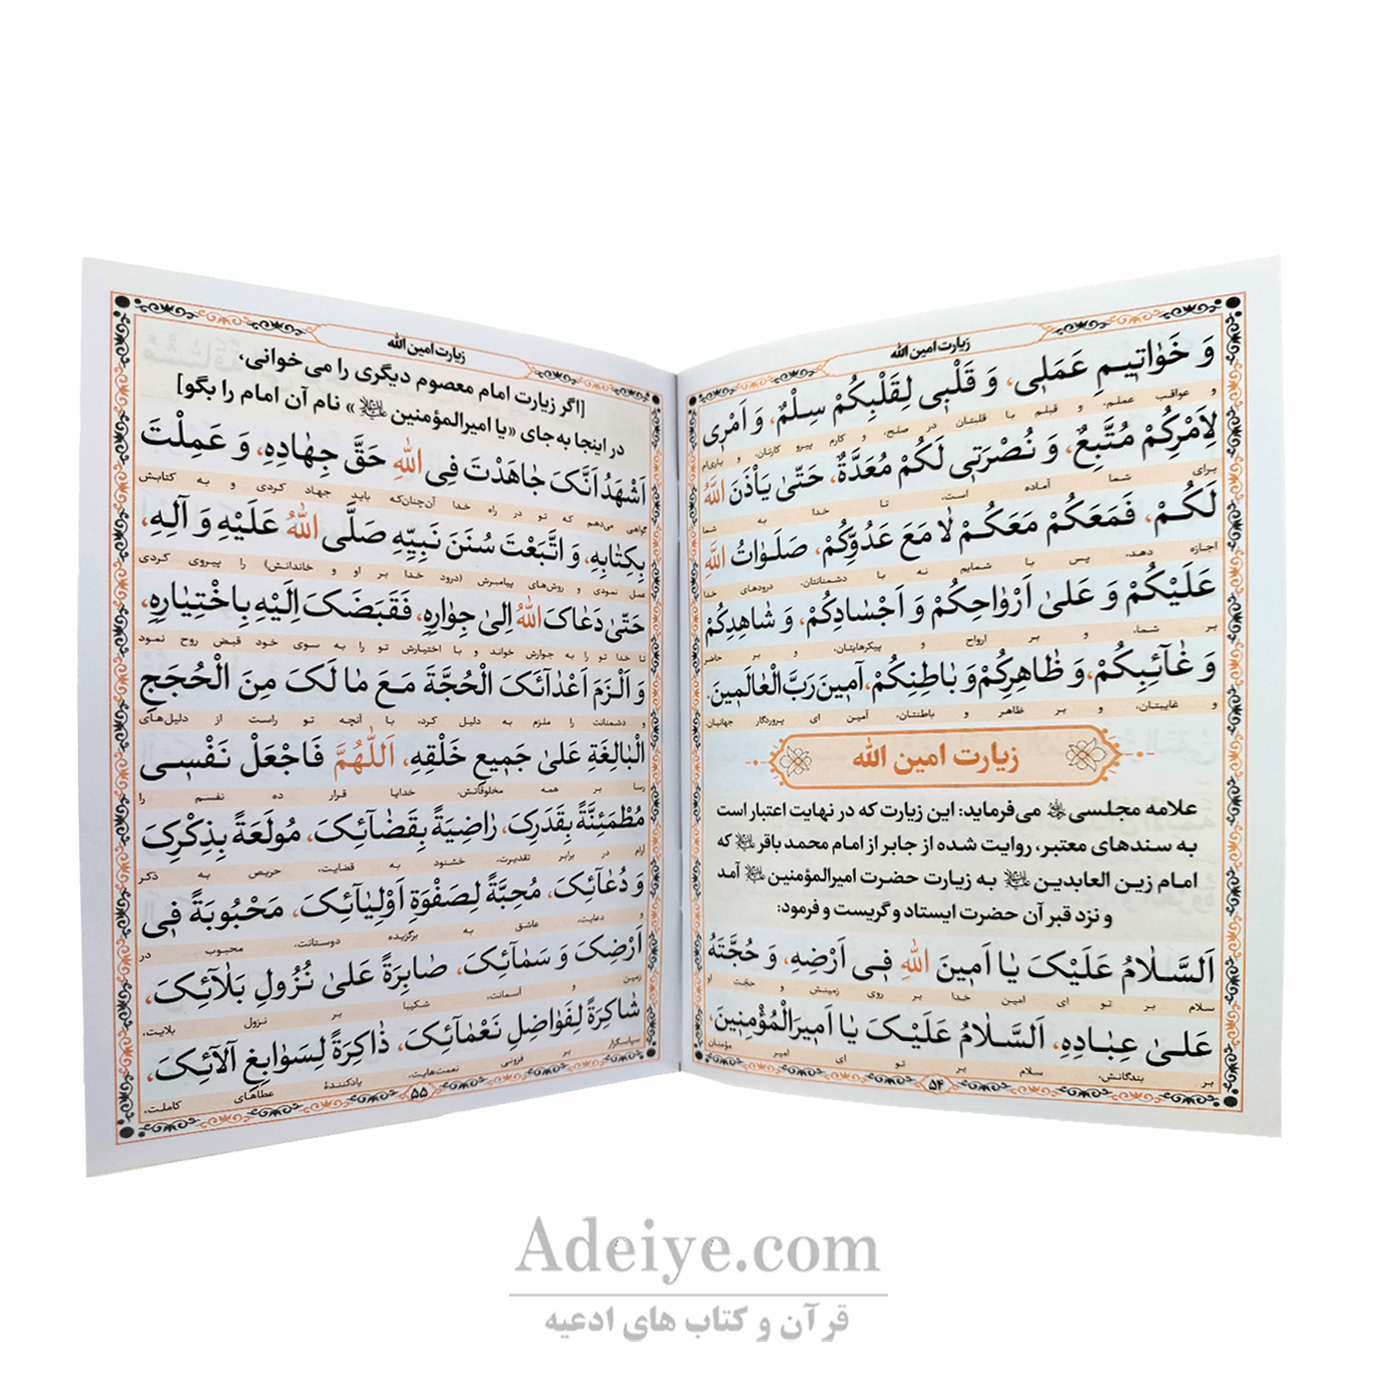 زیارت امین الله
وَ خَوٰاتیٖمِ عَمَلیٖ، وَ قَلْبیٖ لِقَلْبِکُمْ سِلْمٌ، وَ اَمْریٖ
و عواقب عملم، و قبلم با قلبتان در صلح، و کارم پیرو کارتان، و یاری‌ام
لِاَمْرِکُمْ مُتَّبِعٌ، وَ نُصْرَتیٖ لَکُمْ مُعَدَّةٌ، حَتّیٰ یَاْذَنَ اللّٰهُ
برای شما آماده است، تا خدا به شما
لَکُمْ، فَمَعَکُمْ مَعَکُمْ لٰا مَعَ عَدُوِّکُمْ، صَلَوٰاتُ اللّٰهِ
اجازه دهد، پس با شمایم نه با دشمنانتان، درودهای خدا
عَلَیْکُمْ وَ عَلیٰ اَرْوٰاحِکُمْ وَ اَجْسٰادِکُمْ، وَ شٰاهِدِکُمْ
بر شما، و بر ارواح و پیکرهایتان، و بر حاضر
وَ غٰآئِبِکُمْ، وَ ظٰاهِرِکُمْ وَ بٰاطِنِکُمْ، آمیٖنَ رَبَّ الْعٰالَمیٖنَ.
و غایبتان، و بر ظاهر و باطنتان، آمین ای پروردگار جهانیان.
زیارت امین الله
علامه مجلسی می‌فرماید: این زیارت که در نهایت اعتبار است
به سندهای معتبر، روایت شده از جابر از امام محمد باقر که
امام زین العابدین به زیارت حضرت امیرالمؤمنین آمد
و نزد قبر آن حضرت ایستاد و گریست و فرمود:
اَلسَّلٰامُ عَلَیْکَ یٰا اَمیٖنَ اللّٰهِ فیٖ اَرْضِهِ، وَ حُجَّتَهُ
سلام بر تو ای امین خدا بر روی زمینش و حجّت او
عَلیٰ عِبٰادِهِ، اَلسَّلٰامُ عَلَیْکَ یٰا اَمیٖرَالْمُؤْمِنیٖنَ،
بر بندگانش، سلام بر تو ای امیر مؤمنان
۵۴
زیارت امین الله
[اگر زیارت امام معصوم دیگری را می‌خوانی،
در اینجا به جای «یا امیرالمؤمنین» نام آن امام را بگو]
اَشْهَدُ اَنَّکَ جٰاهَدْتَ فِی اللّٰهِ حَقَّ جِهٰادِهِ، وَ عَمِلْتَ
گواهی می‌دهم که تو در راه خدا آن‌چنان‌که باید جهاد کردی و به کتابش
بِکِتٰابِهِ، وَ اتَّبَعْتَ سُنَنَ نَبِیِّهِ صَلَّی اللّٰهُ عَلَیْهِ وَ آلِهِ،
عمل نمودی و روش‌های پیامبرش (درود خدا بر او و خاندانش) را پیروی کردی
حَتّیٰ دَعٰاکَ اللّٰهُ اِلیٰ جِوٰارِهِ، فَقَبَضَکَ اِلَیْهِ بِاخْتِیٰارِهِ،
تا خدا تو را به جوارش خواند و با اختیارش تو را به سوی خود قبض روح نمود
وَ اَلْزَمَ اَعْدٰآئَکَ الْحُجَّةَ مَعَ مٰا لَکَ مِنَ الْحُجَجِ
و دشمنانت را ملزم به دلیل کرد، با آنچه تو راست از دلیل‌های
الْبٰالِغَةِ عَلیٰ جَمیٖعِ خَلْقِهِ، اَللّٰهُمَّ فَاجْعَلْ نَفْسیٖ
رسا بر همه مخلوقاتش، خدایا قرار ده نفسم را
مُطْمَئِنَّةً بِقَدَرِکَ، رٰاضِیَةً بِقَضٰآئِکَ، مُولَعَةً بِذِکْرِکَ
آرام در برابر تقدیرت، خشنود به قضایت، حریص به ذکر
وَ دُعٰآئِکَ، مُحِبَّةً لِصَفْوَةِ اَوْلِیٰآئِکَ، مَحْبُوبَةً فیٖ
و دعایت، عاشق به برگزیده دوستانت، محبوب در
اَرْضِکَ وَ سَمٰآئِکَ، صٰابِرَةً عَلیٰ نُزُولِ بَلٰآئِکَ،
زمین و آسمانت، شکیبا بر نزول بلایت،
شٰاکِرَةً لِفَوٰاضِلِ نَعْمٰآئِکَ، ذٰاکِرَةً لِسَوٰابِغِ آلآئِکَ،
سپاسگزار بر فزونی نعمت‌هایت، یادکنندهٔ عطاهای کاملت،
۵۵
Adeiye.com
قرآن و کتاب های ادعیه